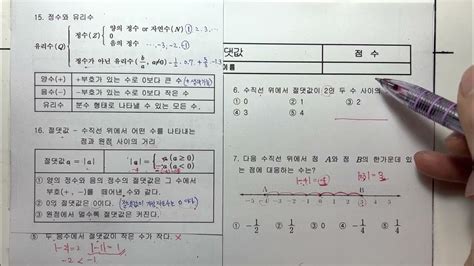 15. 정수와 유리수
유리수(Q)
정수(Z)
양의 정수 or 자연수(N) 1, 2, 3, ...
0
음의 정수 ..., -3, -2, -1
정수가 아닌 유리수(b/a, a≠0)
양수(+) +부호가 있는 수로 0보다 큰 수
음수(-) -부호가 있는 수로 0보다 작은 수
유리수 분수 형태로 나타낼 수 있는 모든 수
16. 절댓값 - 수직선 위에서 어떤 수를 나타내는
점과 원점 사이의 거리
절댓값 = |a| |a| = a (a≥0)
-a (a<0)
① 양의 정수와 음의 정수의 절댓값은 그 수에서
부호(+, -)를 떼어낸 수와 같다.
② 0의 절댓값은 0이다.
③ 원점에서 멀수록 절댓값은 커진다.
⑤ 두 음수에서 절댓값이 작은 수가 작다. ×
|-2|=2 |-1|=1
-2 < -1
댓값
점 수
이름
6. 수직선 위에서 절댓값이 2인 두 수 사이의
① 0 ② 1 ③ 2
④ 3 ⑤ 4
7. 다음 수직선 위에서 점 A와 점 B의 한가운데 있
는 점에 대응하는 수는?
|-4|=4 |3|=3
A B
-4 3
① -1/4 ② -1/2 ③ 0 ④ 1/4 ⑤ 1/2